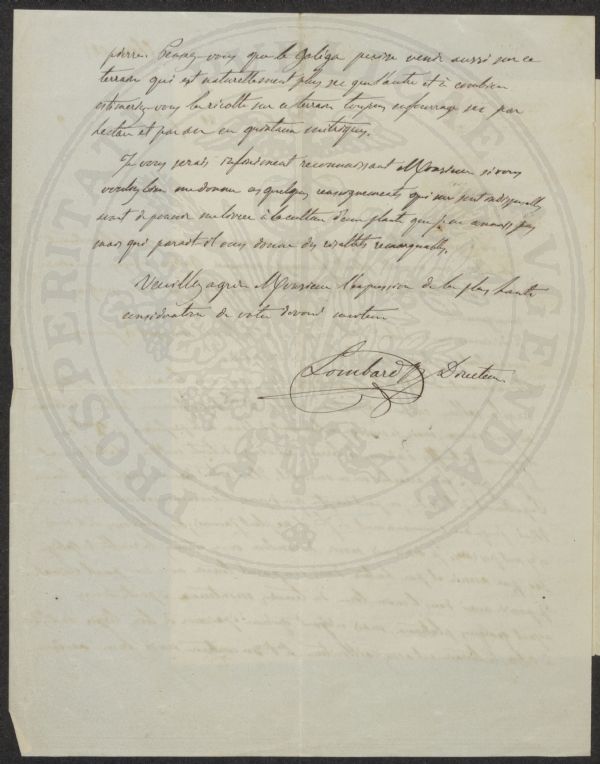 pierre. Pensez-vous que le Galéga puisse venir aussi sur ce
terrain qui est naturellement plus sec que l'autre et à combien
estimeriez-vous la récolte sur ce terrain toujours en fourrage sec par
hectare et par an en quintaux métriques.
Je vous serais infiniment reconnaissant Monsieur si vous
vouliez bien me donner ces quelques renseignements qui me sont indispensables
avant de pouvoir me livrer à la culture d'une plante que je ne connais pas
mais qui parait-il vous donne des résultats remarquables.
Veuillez agréer Monsieur l'expression de la plus haute
considération de votre dévoué serviteur
Lombard Directeur
PROSPERITATI AUGENDAE